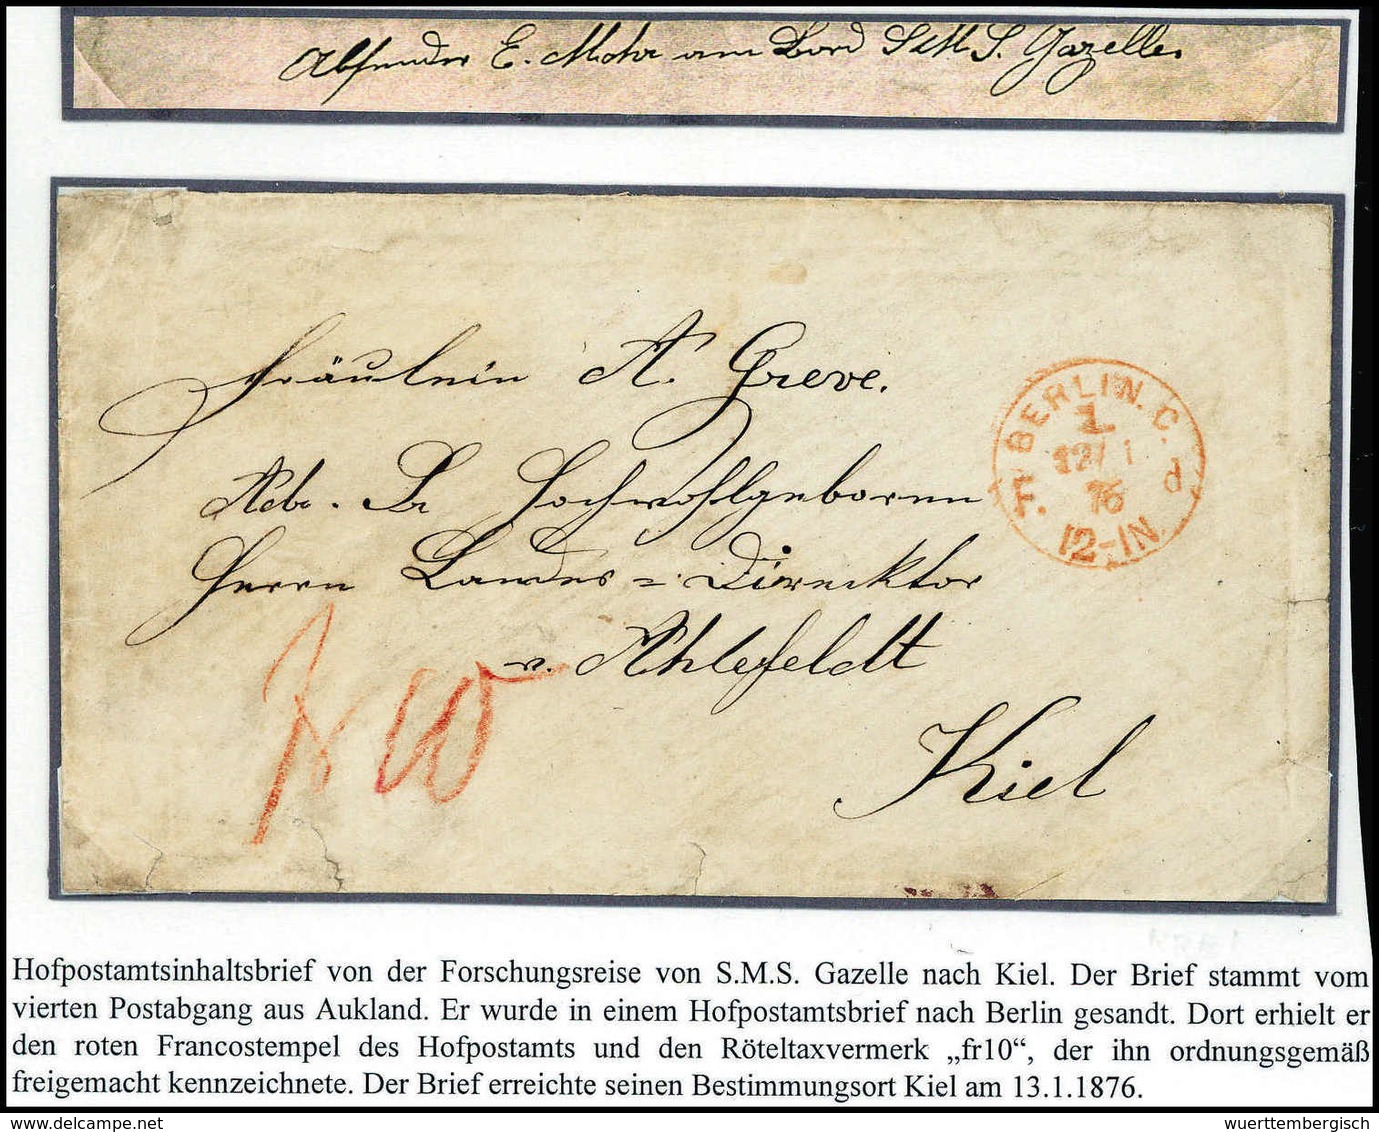 Absender E. Mohr am Bord S.M.S. Gazelle.
Fräulein A. Greve.
Adr. Sr Hochwohlgeboren
Herrn Landes=Direcktor
v. Ahlefeldt
Kiel
fr 10
BERLIN. C.
1
12/1
76
F. d
12-1N.
Hofpostamtsinhaltsbrief von der Forschungsreise von S.M.S. Gazelle nach Kiel. Der Brief stammt vom
vierten Postabgang aus Aukland. Er wurde in einem Hofpostamtsbrief nach Berlin gesandt. Dort erhielt er
den roten Francostempel des Hofpostamts und den Röteltaxvermerk „fr10“, der ihn ordnungsgemäß
freigemacht kennzeichnete. Der Brief erreichte seinen Bestimmungsort Kiel am 13.1.1876.
delcampe.net
wuerttembergisch